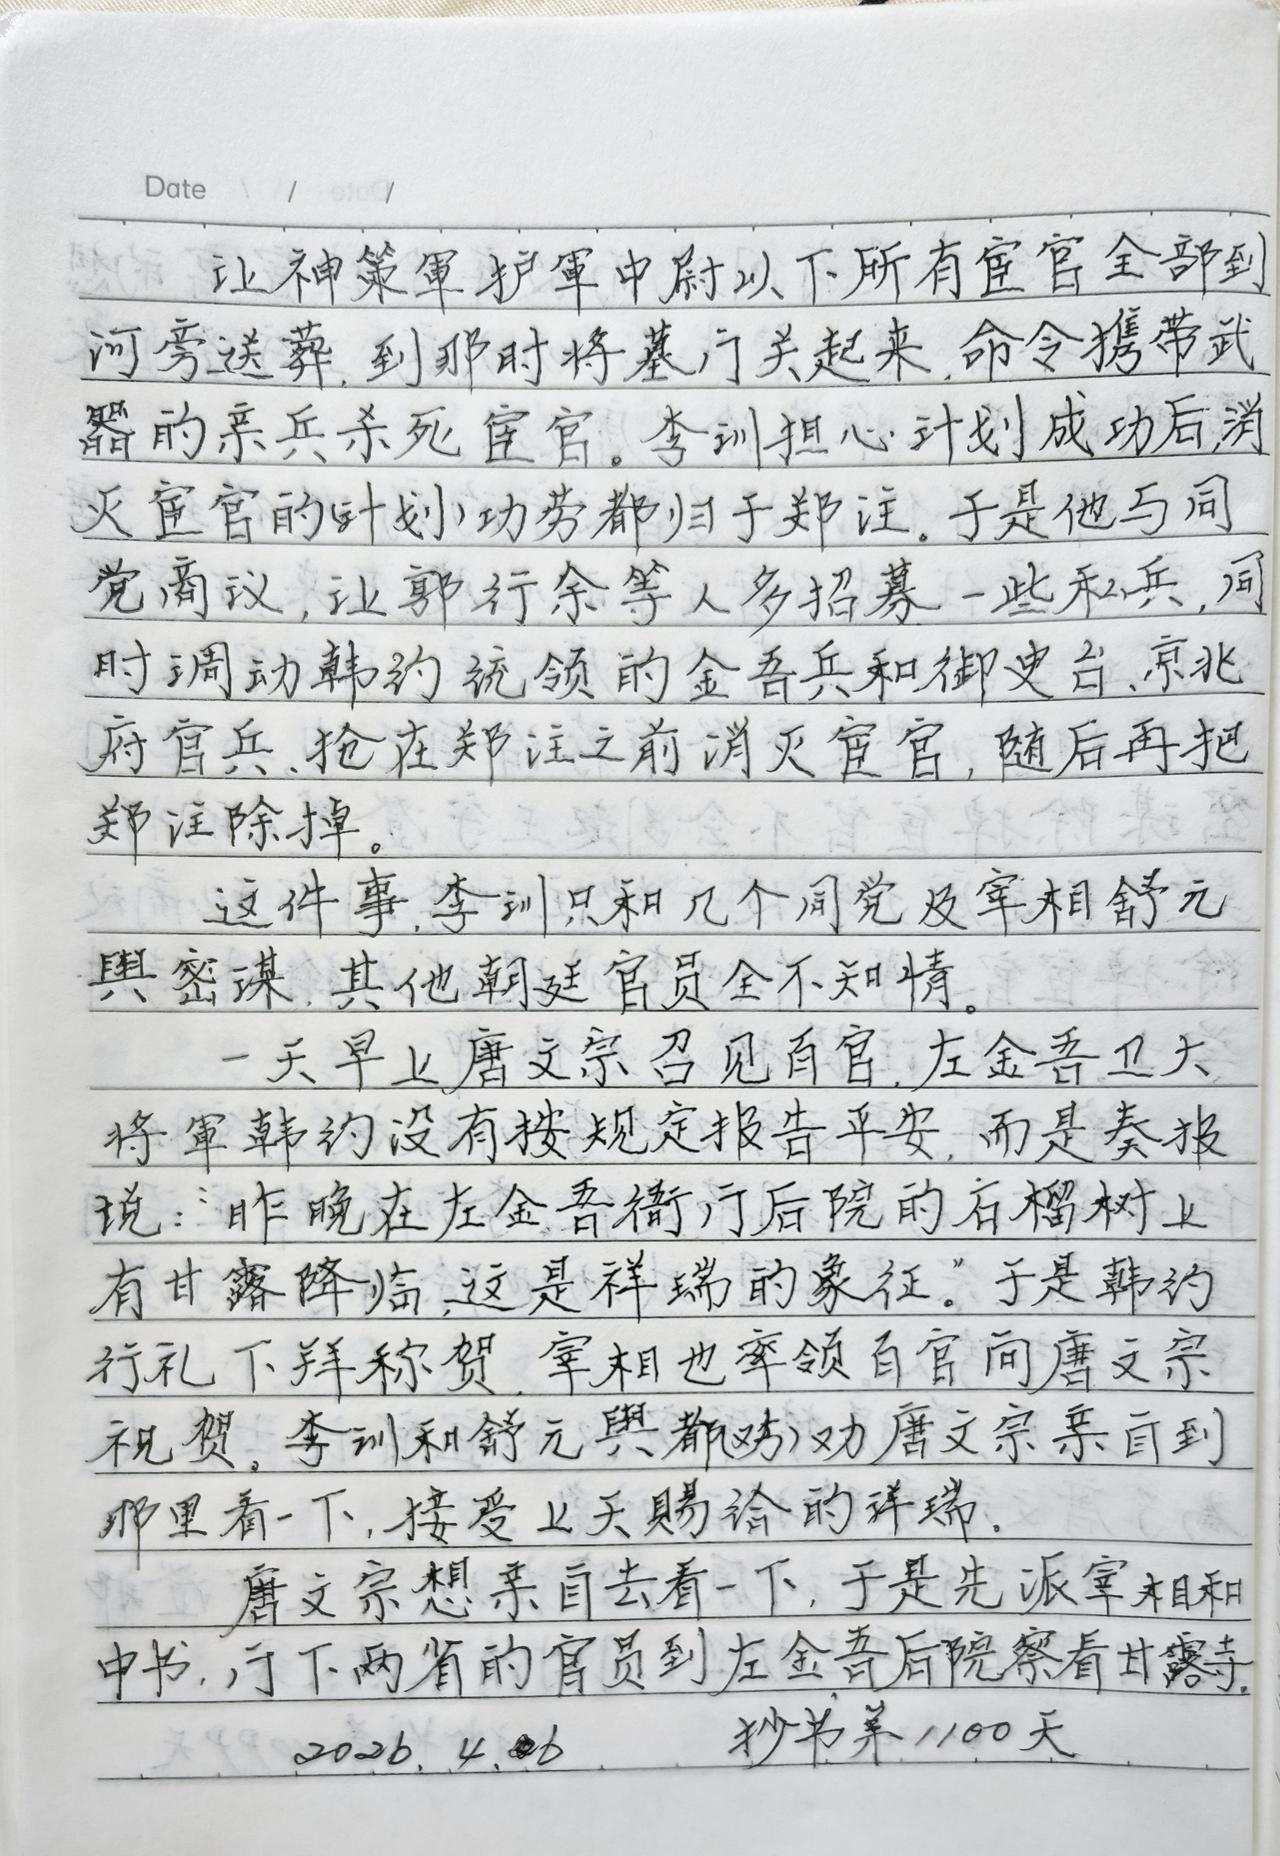 Date / /
让神策軍护軍中尉以下所有宦官全部到
河旁送葬,到那时将墓门关起来,命令携带武
器的亲兵杀死宦官。李训担心计划成功后,消
灭宦官的(计划)功劳都归于郑注。于是他与同
党商议,让郭行余等人多招募一些私兵,同
时调动韩约统领的金吾兵和御史台、京兆
府官兵、抢在郑注之前消灭宦官,随后再把
郑注除掉。
这件事,李训只和几个同党及宰相舒元
舆密谋,其他朝廷官员全不知情。
一天早上唐文宗召见百官,左金吾卫大
将軍韩约没有按规定报告平安,而是奏报
说:"昨晚在左金吾衙门后院的石榴树上
有甘露降临,这是祥瑞的象征。"于是韩约
行礼下拜称贺,宰相也率领百官向唐文宗
祝贺。李训和舒元舆都(劝)劝唐文宗亲自到
那里看一下,接受上天赐给的祥瑞.
唐文宗想亲自去看一下,于是先派宰相和
中书,门下两省的官员到左金吾后院察看甘露寺.
2026.4.26 抄书第1100天